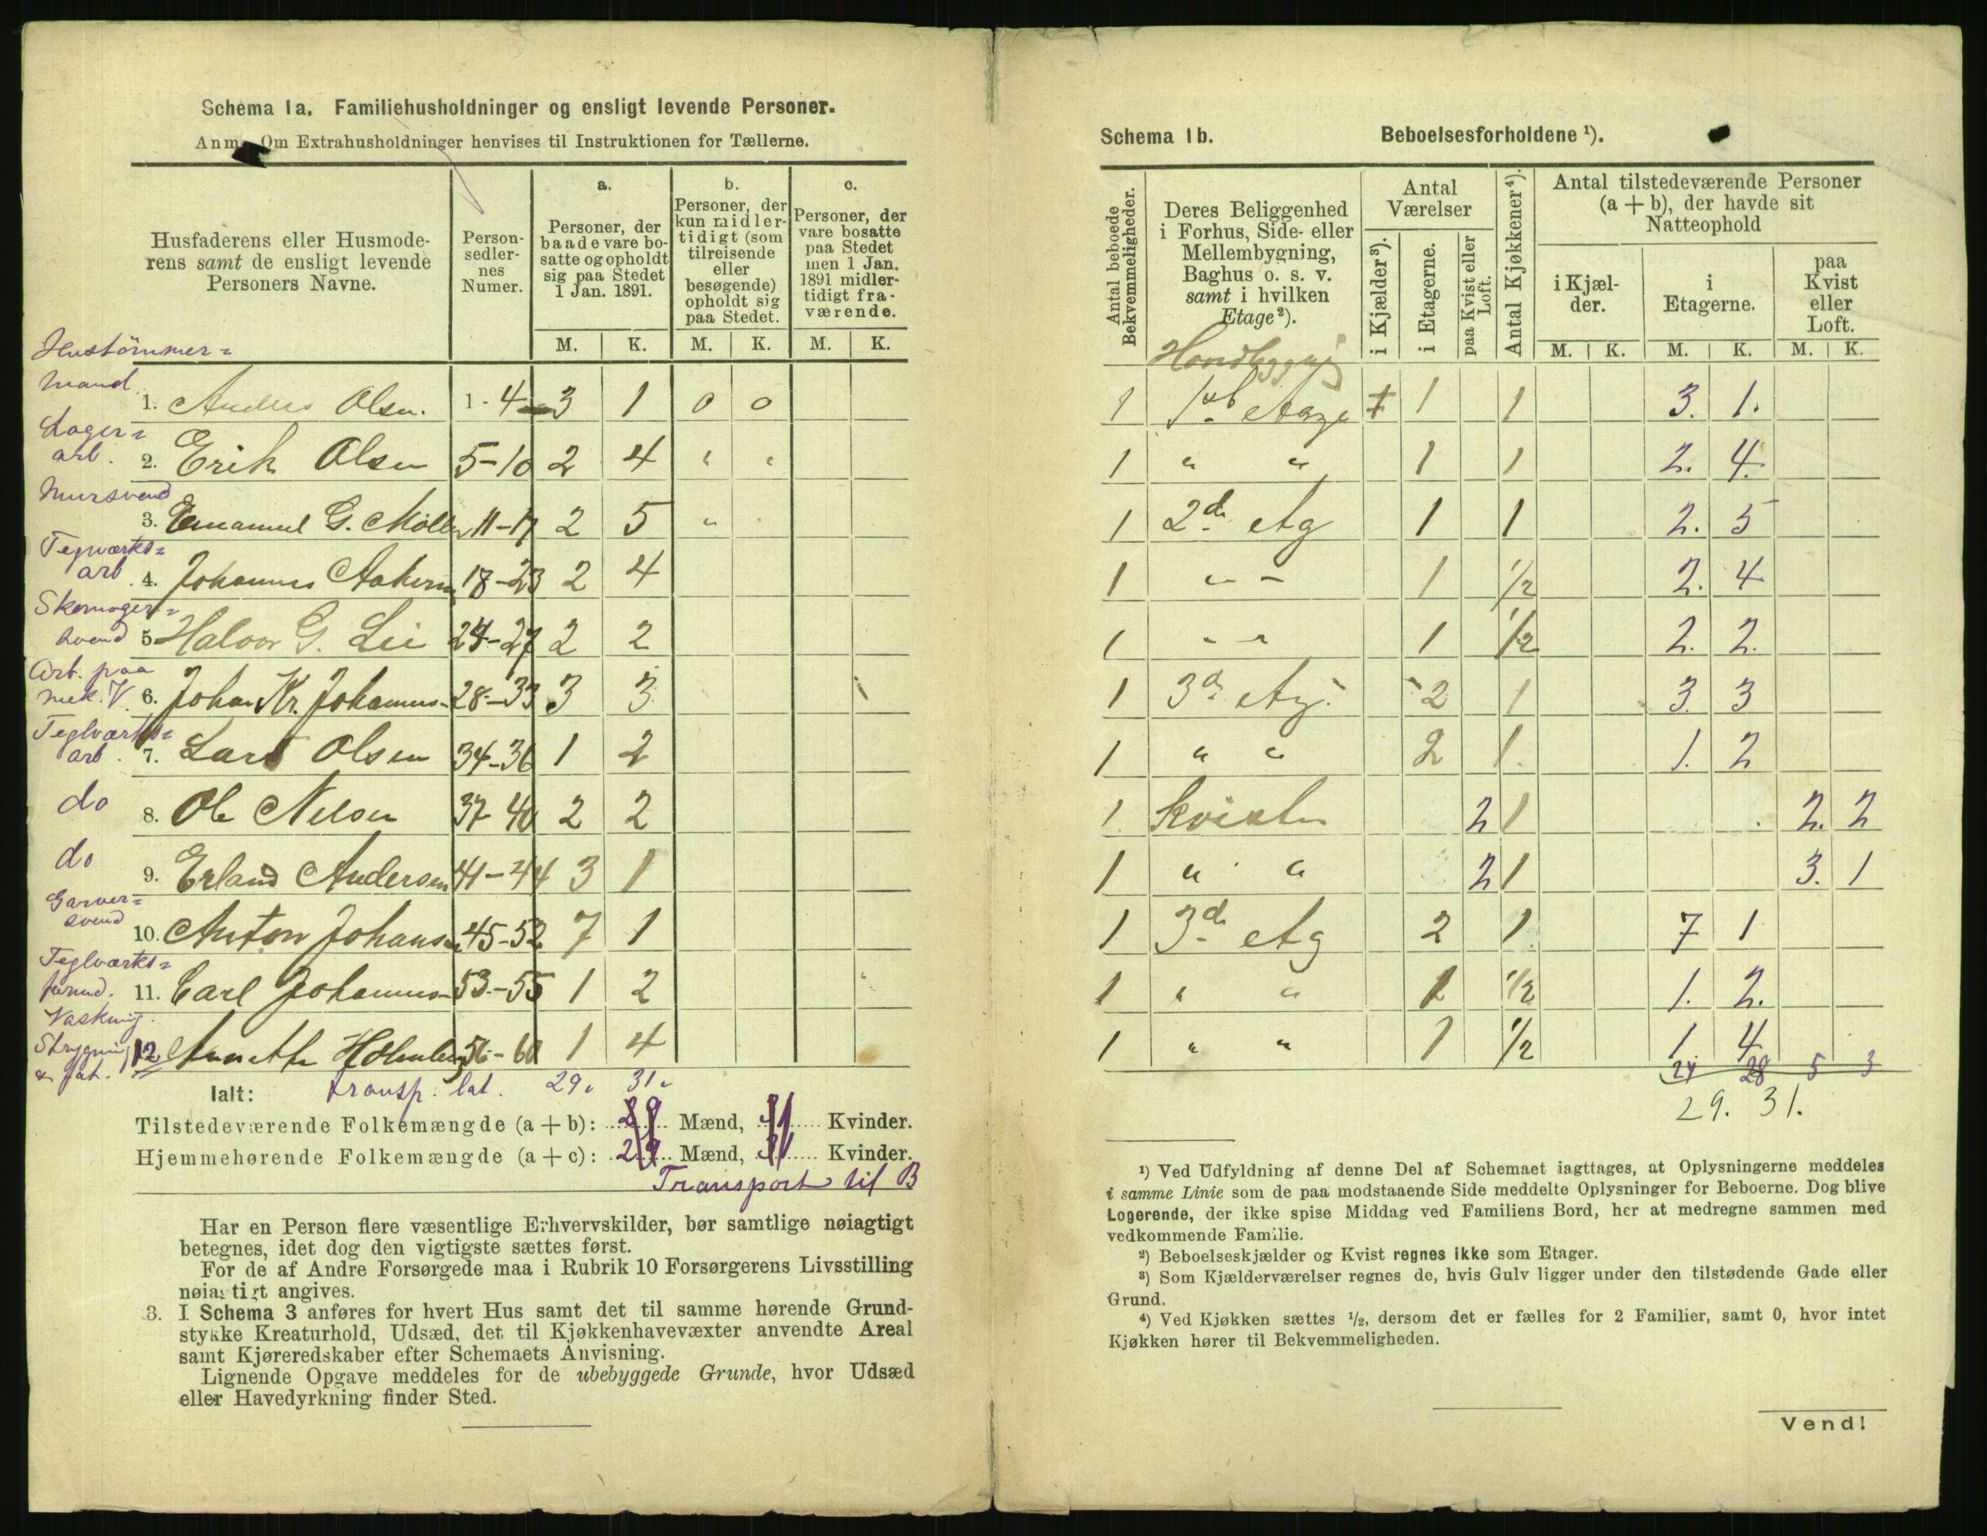 Schema 1a. Familiehusholdninger og ensligt levende Personer.
Anm. Om Extrahusholdninger henvises til Instruktionen for Tællerne.
Husfaderens eller Husmode-
rens samt de ensligt levende
Personers Navne.
Person-
sedler-
nes
Numer.
a.
Personer, der
baade vare bo-
satte og opholdt
sig paa Stedet
1 Jan. 1891.
b.
Personer, der
kun midler-
tidigt (som
tilreisende
eller
besøgende)
opholdt sig
paa Stedet.
c.
Personer, der
vare bosatte
paa Stedet
men 1 Jan.
1891 midler-
tidigt fra-
værende.
M. K. M. K. M. K.
Hustömmer=
mand 1. Anders Olsen. 1-4 3 1 0 0
Lager=
arb. 2. Erik Olsen 5-10 2 4 " "
Mursvend
3. Emanuel G. Mölle 11-17 2 5 "
Teglværks=
arb. 4. Johannes 18-23 2 4
Skomager=
svend 5. Halvor G. Lie 24-27 2 2
Arb. paa
mek. V. 6. Johan Kr. Johannes 28-33 3 3
Teglværks=
arb. 7. Lars Olsen 34-36 1 2
do 8. Ole Nilsen 37-40 2 2
do 9. Erland Andersen 41-44 3 1
Garver=
svend 10. Anton Johans 45-52 7 1
Teglværks=
formd. 11. Carl Johannes 53-55 1 2
Vaskning
Strygning 12 Annette Holmberg 56-60 1 4
& fat.
Ialt: transp. lat. 29. 31.
Tilstedeværende Folkemængde (a + b): 29 Mænd, 31 Kvinder.
Hjemmehørende Folkemængde (a + c): 29 Mænd, 31 Kvinder.
Transport til B
Har en Person flere væsentlige Erhvervskilder, bør samtlige nøiagtigt
betegnes, idet dog den vigtigste sættes først.
For de af Andre Forsørgede maa i Rubrik 10 Forsørgerens Livsstilling
nøiagtigt angives.
3. I Schema 3 anføres for hvert Hus samt det til samme hørende Grund-
stykke Kreaturhold, Udsæd, det til Kjøkkenhavevæxter anvendte Areal
samt Kjøreredskaber efter Schemaets Anvisning.
Lignende Opgave meddeles for de ubebyggede Grunde, hvor Udsæd
eller Havedyrkning finder Sted.
Schema 1b. Beboelsesforholdene ¹).
Antal beboede
Bekvemmeligheder.
Deres Beliggenhed
i Forhus, Side- eller
Mellembygning,
Baghus o. s. v.
samt i hvilken
Etage²).
Antal
Værelser
i Kjælder³).
i Etagerne.
paa Kvist eller
Loft.
Antal Kjøkkener⁴).
Antal tilstedeværende Personer
(a + b), der havde sit
Natteophold
i Kjæl-
der.
i
Etagerne.
paa
Kvist
eller
Loft.
M. K. M. K. M. K.
1 1 1 3. 1.
1 " " 1 1 2. 4.
1 2de Etg 1 1 2. 5
1 " " 1 1/2 2. 4
1 " " 1 1/2 2. 2.
1 3de Etg. 2 1 3. 3
1 " " 2 1. 1. 2
1 Kvisten 2 1 2. 2
1 " " 2 1 3. 1
1 3de Etg 2 1 7 1
1 " " 1 1/2 1. 2.
1 " " 1 1/2 1 4
24 28 5 3
29. 31.
¹) Ved Udfyldning af denne Del af Schemaet iagttages, at Oplysningerne meddeles
i samme Linie som de paa modstaaende Side meddelte Oplysninger for Beboerne. Dog blive
Logerende, der ikke spise Middag ved Familiens Bord, her at medregne sammen med
vedkommende Familie.
²) Beboelseskjælder og Kvist regnes ikke som Etager.
³) Som Kjælderværelser regnes de, hvis Gulv ligger under den tilstødende Gade eller
Grund.
⁴) Ved Kjøkken sættes ½, dersom det er fælles for 2 Familier, samt 0, hvor intet
Kjøkken hører til Bekvemmeligheden.
Vend!